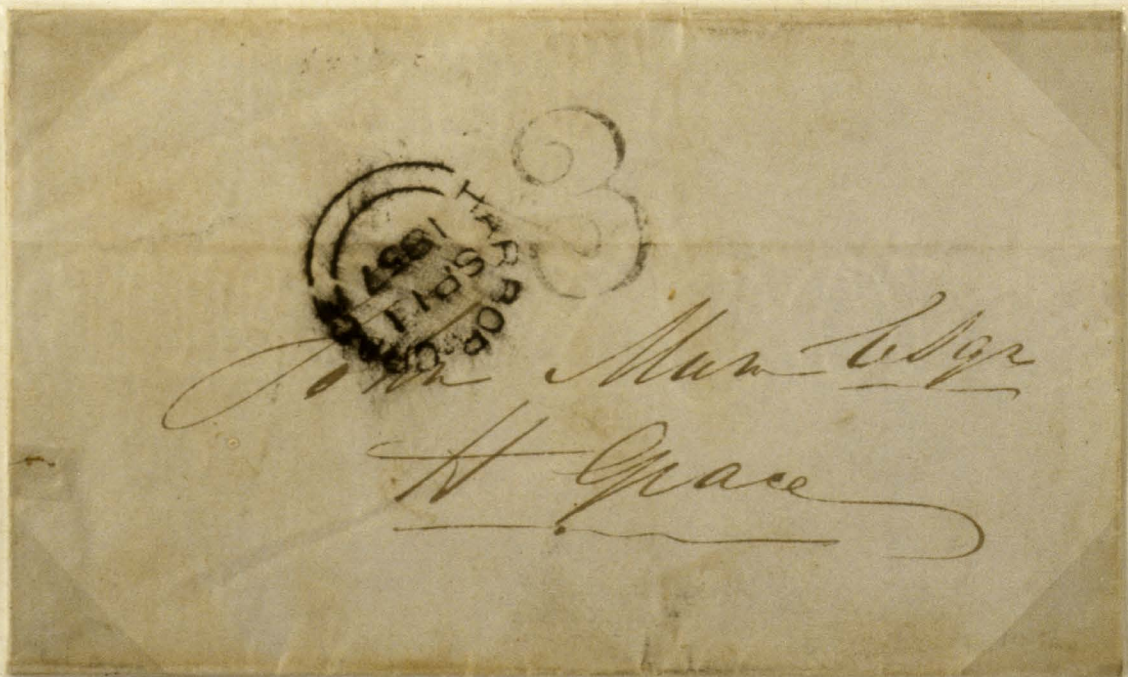 3
HARBOR GRACE
SP 11
1857
John Munn Esqr
H Grace